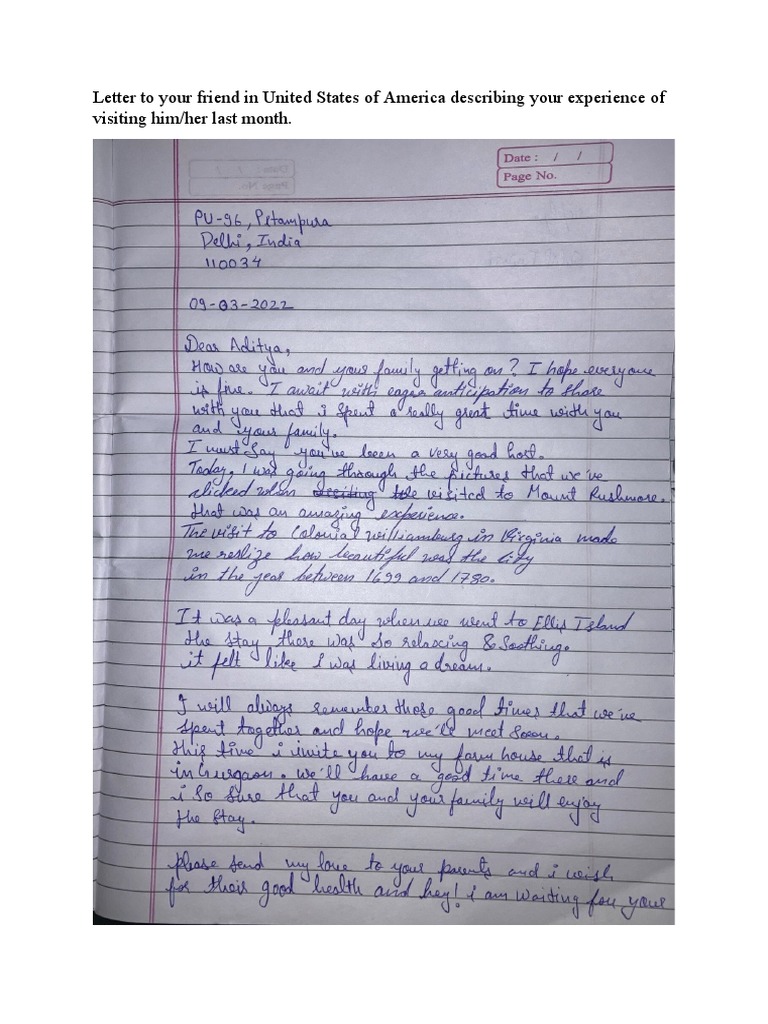 Letter to your friend in United States of America describing your experience of
visiting him/her last month.
Date : / /
Page No.
PU-96, Pitampura
Delhi, India
110034
09-03-2022
Dear Aditya,
How are you and your family getting on? I hope everyone
is fine. I await with eager anticipation to share
with you that i spent a really great time with you
and your family.
I must say you've been a very good host.
Today, I was going through the pictures that we've
clicked when we visited to Mount Rushmore.
that was an amazing experience.
The visit to Colonial williamsburg in Virginia made
me reslize how beautiful was the city
in the year between 1699 and 1780.
It was a pleasant day when we went to Ellis Island
the stay there was so relaxing & Soothing.
it felt like I was living a dream.
I will always remember those good times that we've
spent together and hope we'll meet soon.
this time i invite you to my farm house that is
in Gurgaon. we'll have a good time there and
i so sure that you and your family will enjoy
the stay.
please send my love to your parents and i wish
for their good health and hey! i am waiting for your